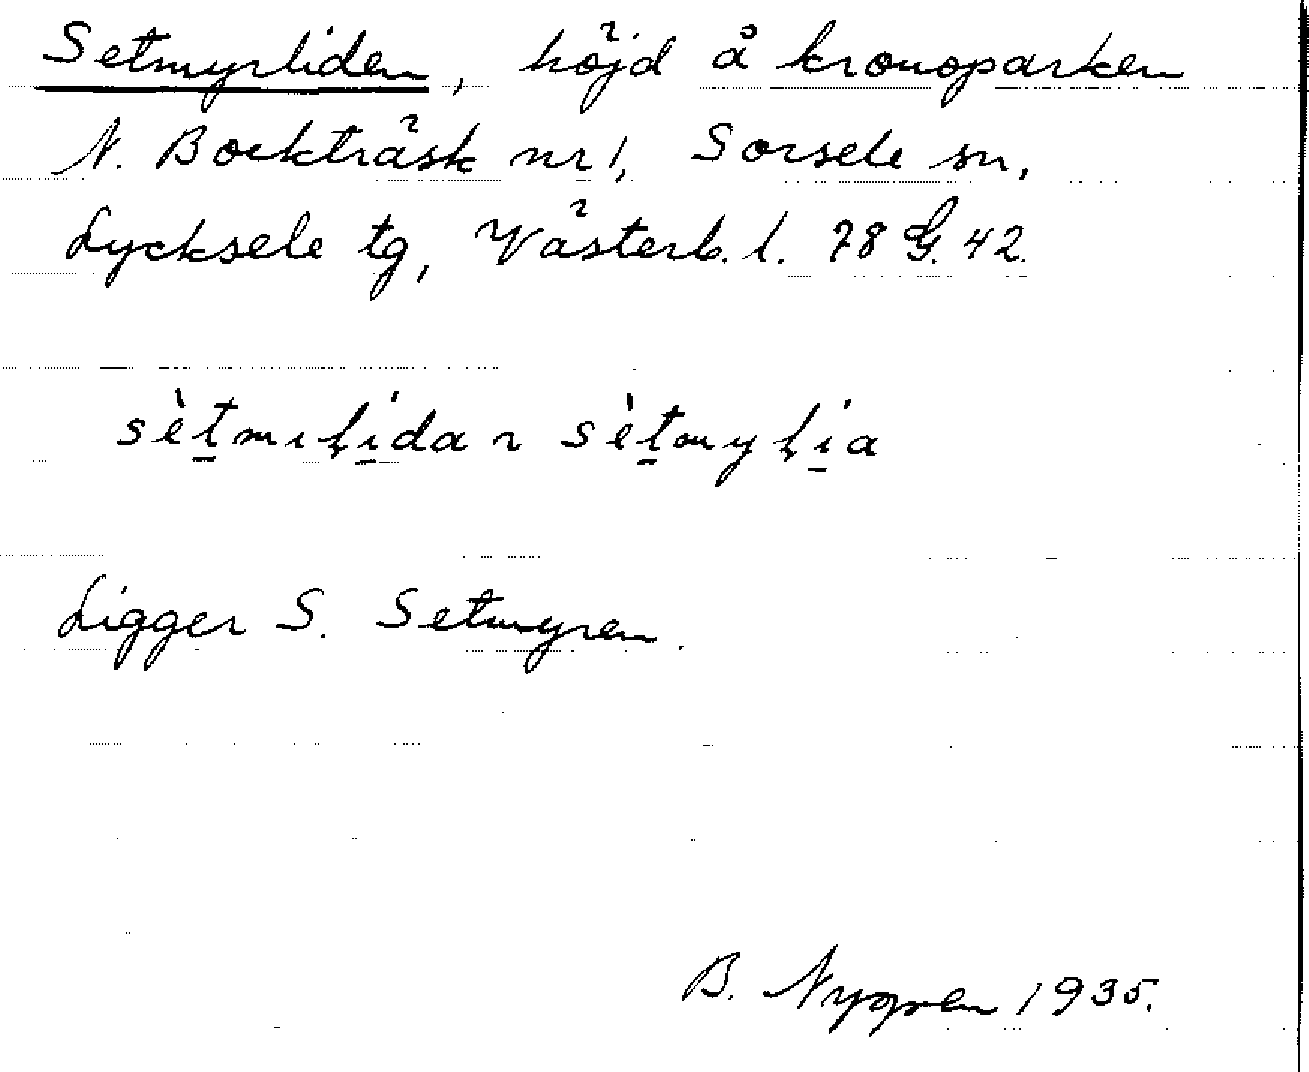 Setmyrliden, höjd å kronoparken
N. Bockträsk nr 1, Sorsele sn,
Lycksele tg, Västerb. l. 78 G. 42.
Ligger S. Setmyren.
B. Nygren 1935.